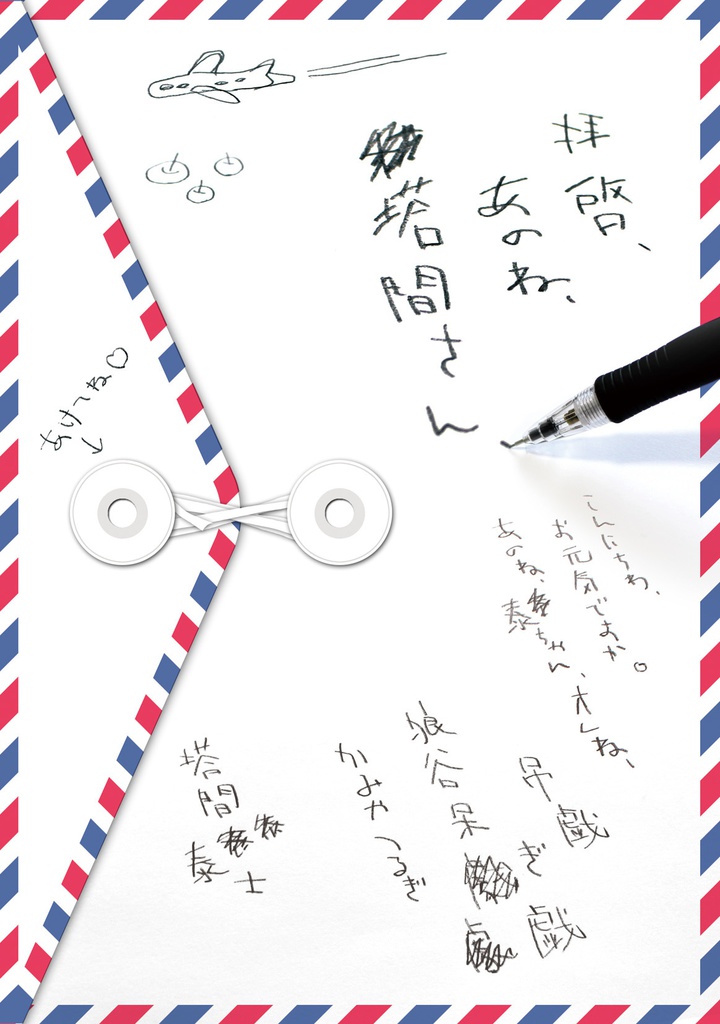 拝啓、
あのね、
塔間さん
あけてね♡
こんにちわ、
お元気ですか。
あのね、泰ちゃん、オレね、
戯
ぎ
戯
谷呆
かみやつるぎ
塔間
泰士